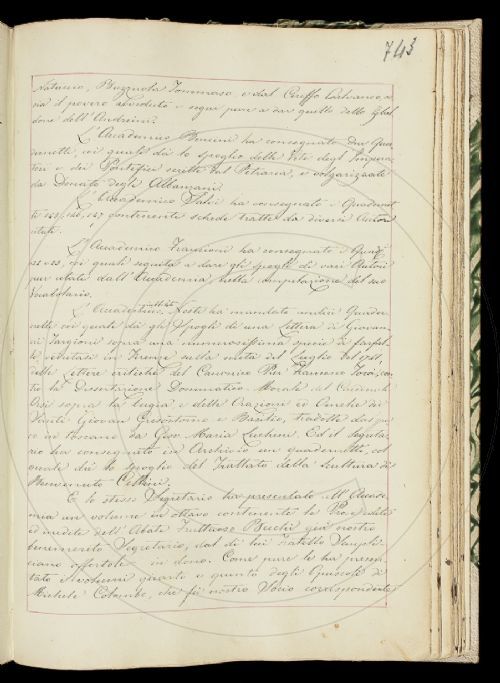 743
Natuccio, Buggnola Tommaso e dal Ciriffo Calvaneo,
sia il povero avveduto e segue pure a dar quello dello
done dell'Andreini.
L'Accademico Bencini ha consegnato due Qua
dernetti, coi quali dà lo spoglio delle Vite degl'Impera
tori e dei Pontefici scritte dal Petrarca, e volgarizzate
da Donato degli Albanzani.
L'Accademico ha consegnato i Quadernet
ti 125, 126, 127 contenente schede tratte da diversi Autori
citati.
L'Accademico Franzioni ha consegnato i Quadri
22 e 23, coi quali seguita a dare gli spogli di vari Autori
pur citati dall'Accademia nella compilazione del suo
Vocabolario.
L'Accademico Coste ha mandato undici Quader
netti coi quali dà gli spogli di una Lettera di Giovan
ni Targioni sopra una numerosissima specie di farfal
le vedutasi in Firenze sulla metà del Luglio del 1741,
delle Lettere artistiche del Canonico Pier Francesco Foggi, con
tro la Dissertazione Dommatico-Morale del Cardinale
Orsi sopra la bugia e delle Orazioni ed Omelie di
Giovan Grisostomo e Basilio, tradotte dal gre
co in toscano da Giov. Maria Luchini. Ed il Segreta
rio ha consegnato in Archivio un quadernetto, col
quale dà lo spoglio del Trattato della Scultura di
Benvenuto Cellini.
E lo stesso Segretario ha presentato all'Accade
mia un volume in ottavo contenente le Prose edite
ed inedite dell'Abate Fruttuoso Becchi già nostro
benemerito Segretario, dal di lui Fratello
offertole in dono. Come pure le ha presen
tato i volumi quarto e quinto degli Opuscoli di
Michele Colombo, che fù nostro Socio corrispondente